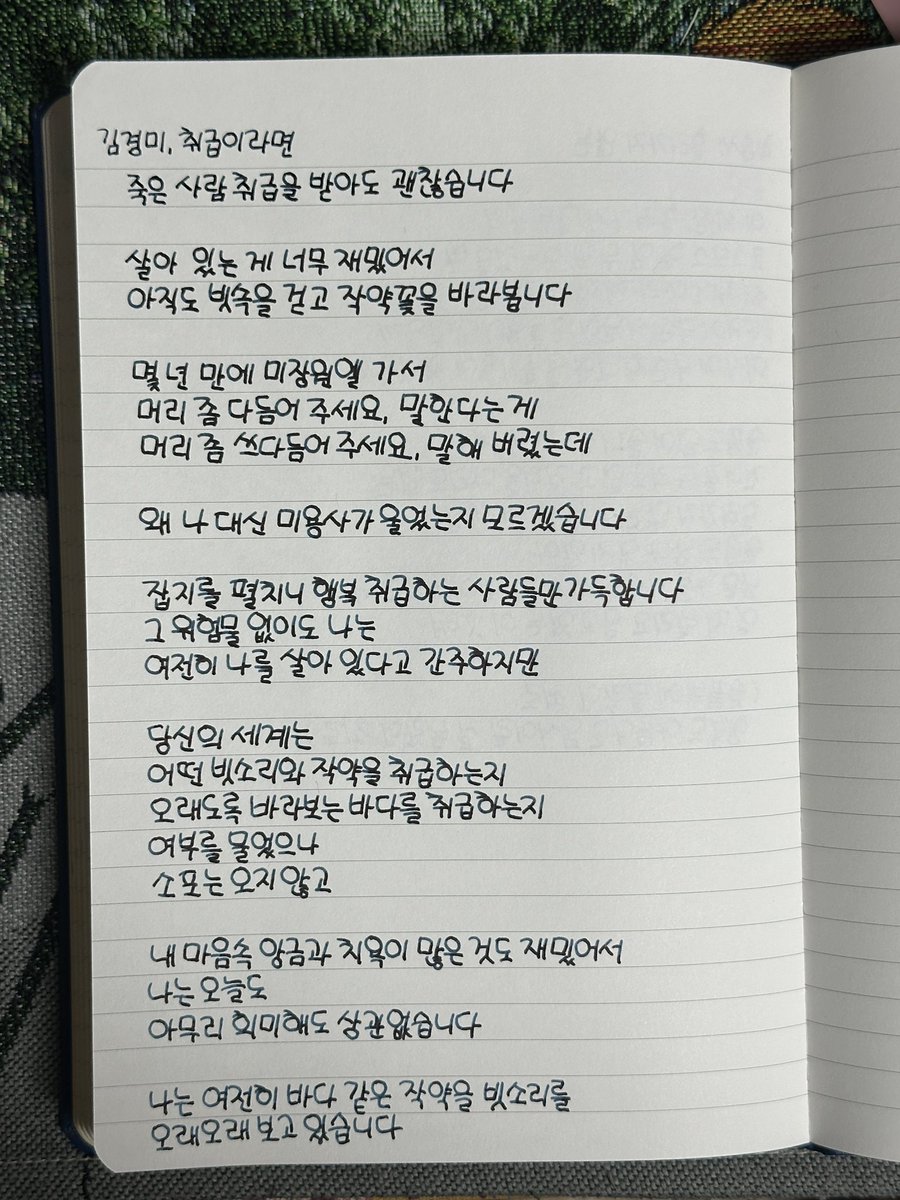 김경미, 취급이라면
죽은 사람 취급을 받아도 괜찮습니다
살아 있는 게 너무 재밌어서
아직도 빗속을 걷고 작약꽃을 바라봅니다
몇 년 만에 미장원엘 가서
머리 좀 다듬어 주세요, 말한다는 게
머리 좀 쓰다듬어 주세요, 말해 버렸는데
왜 나 대신 미용사가 울었는지 모르겠습니다
잡지를 펼치니 행복 취급하는 사람들만 가득합니다
그 위험물 없이도 나는
여전히 나를 살아 있다고 간주하지만
당신의 세계는
어떤 빗소리와 작약을 취급하는지
오래도록 바라보는 바다를 취급하는지
여부를 물었으나
소포는 오지 않고
내 마음속 앙금과 치욕이 많은 것도 재밌어서
나는 오늘도
아무리 희미해도 상관없습니다
나는 여전히 바다 같은 작약을 빗소리를
오래오래 보고 있습니다